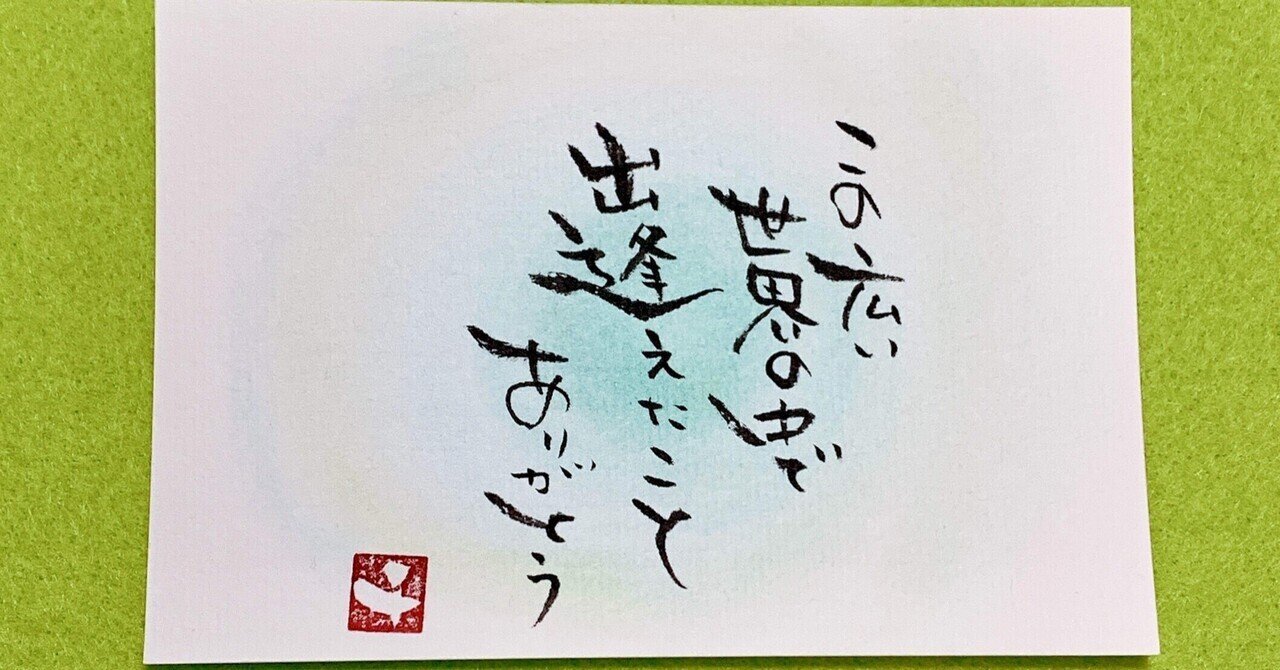 この広い
世界の中で
出逢えたこと
ありがとう